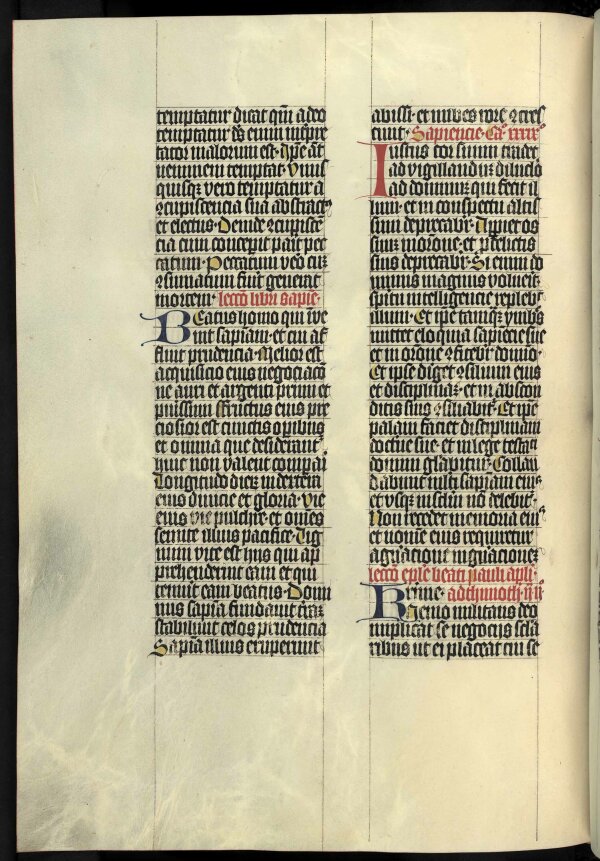 temptatur dicat qm̄ a deo
temptatur ds̄ enim intēpre
tator malorum est · Ip̄e aūt
neminem temptat · Vnus
quisq; vero temptatur a
ꝯcupiscencia sua abstractꝯ
et electus · Deinde ꝯcupiscē
cia cum concepit parit pec
catum · Peccatum vēo cū
ꝯsumatum fuit̄ generat
mortem · lectō libri sapīe ·
BEatus homo qui īve
nit sapiam̄ · et cui af
fluit prudencia · Melior est
acquisicio eius negociacō
ne auri et argenti primi et
purissimi ffructus eius pre
ciosior est cunctis opibus
et omnia que desiderant̄
huic non valent compaī
Longitudo dieꝝ in dextera
eius diuicie et gloria · vie
eius vie pulchre · et om̄es
semite illius pacifice · Lig
num vite est hijs qui ap
prehenderint eam et qui
tenuit̄ eam beatus · Domi
nus sapīa fundauit terrā
stabiliuit celos prudencia
Sapīa illius eruperunt
abissi · et nubes rore ꝯcres
cunt · Sapiencie · Ca · xxxix
Iustus cor suum tradet
ad vigillandū diluclo
ad dominū qui fecit il
lum · et in conspectu altis
simi deprecabr̄ · Aperiet os
suū in orōne · et p̱ delictis
suis deprecabr̄ · Si enim do
minus magnus voluerit ·
spū intelligencie replebt̄
illum · Et ip̄e tamq̄ ymbs
mittet eloquia sapīecie sue
et in orōne ꝯfitebr̄ domīo ·
Et ipse diget ꝯsilium eius
et disciplinā · et in abscon
ditis suis ꝯsiliabit̄ · Et ip̄e
palam faciet disciplinam
doctrīe sue · et in lege testāti
domini glābitur · Collau
dabunt multi sapīam eiꝯ
et vsq; in sclm̄ nō delebit̄ ·
Non recedet memoria eiꝯ
et nomē eius requiretur
a gnacione in gnacionē
lectō epl̄e beati pauli apl̄i ·
ad thimoth · ii ·
genio militans deo
implicat se negociis scl̄a
ribus ut ei placeat cui se